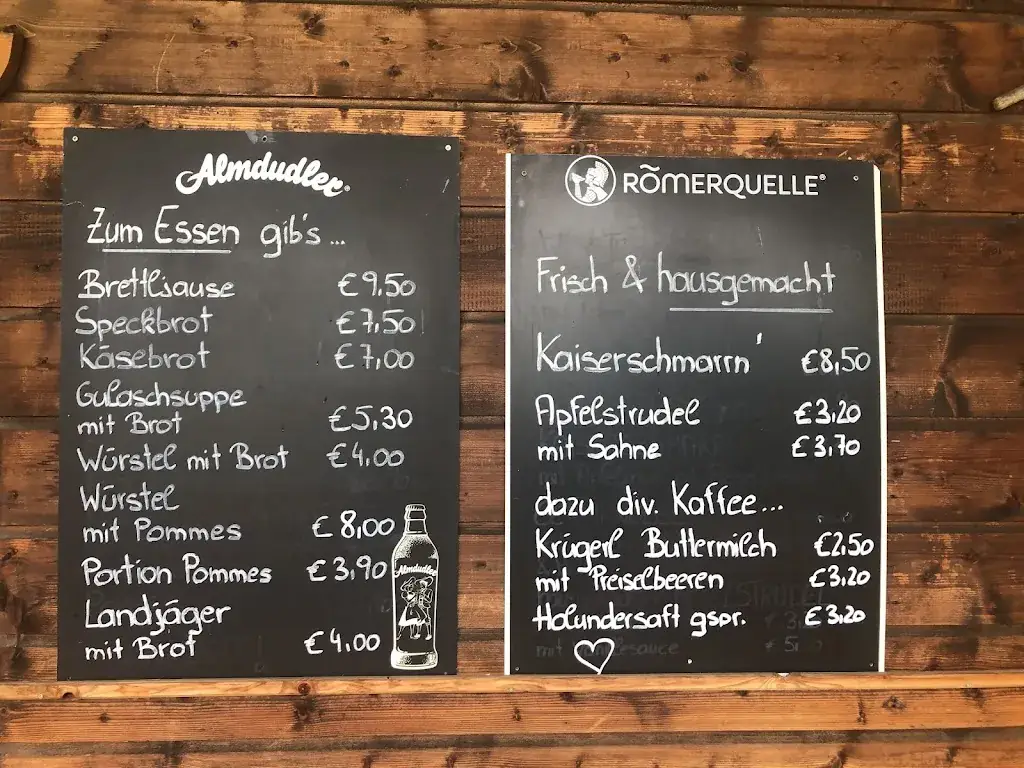 Almdudler®
Zum Essen gib's ...
Brettljause €9,50
Speckbrot €7,50
Käsebrot €7,00
Gulaschsuppe
mit Brot €5,30
Würstel mit Brot €4,00
Würstel
mit Pommes €8,00
Portion Pommes €3,90
Landjäger
mit Brot €4,00
Almdudler
RÖMERQUELLE®
Frisch & hausgemacht
Kaiserschmarrn' €8,50
Apfelstrudel €3,20
mit Sahne €3,70
dazu div. Kaffee...
Krügerl Buttermilch €2,50
mit Preiselbeeren €3,20
Holundersaft gspr. €3,20
mit Vanillesauce